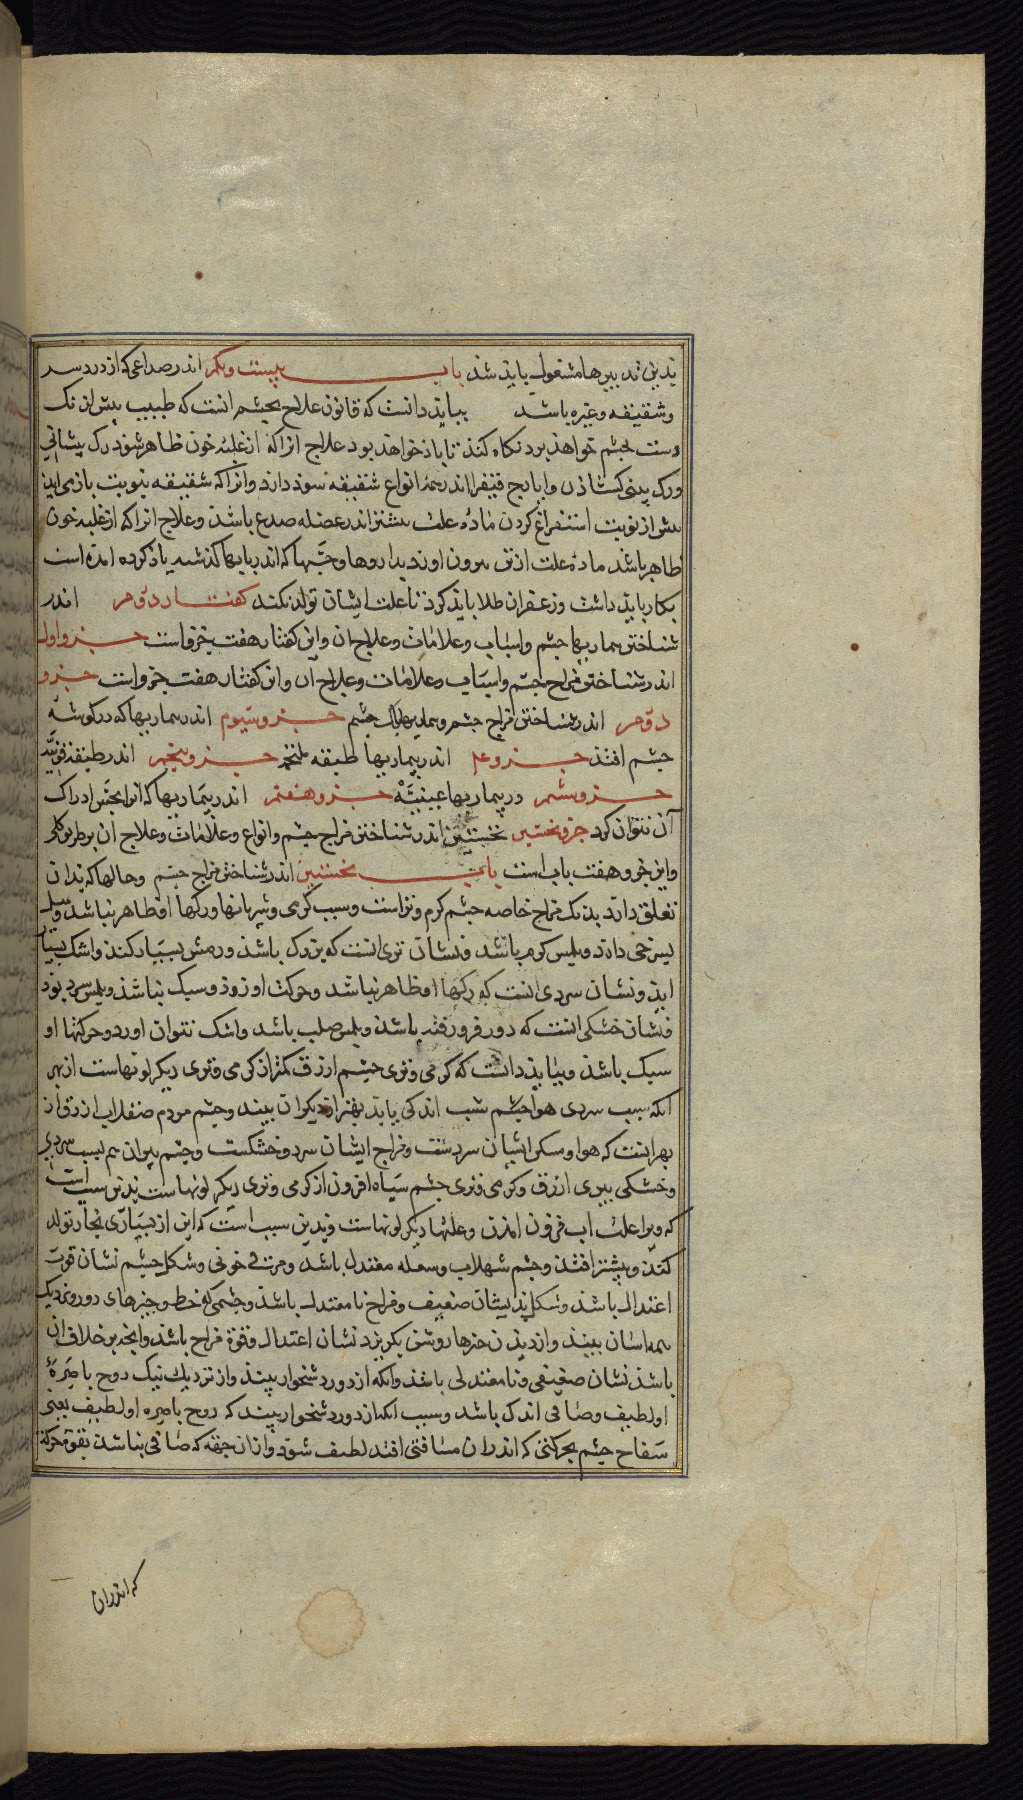 بدین تدبیرها مشغول باید شد باب بیست و یکم اندر صداعی که از درد سر
و شقیقه و غیره باشد بباید دانست که قانون علاج چشم انست که طبیب پیش از انک
دست بچشم خواهد برد نکاه کند تا باذ خواهد بود علاج انرا که از غلبه خون ظاهر شود رک پیشانی
ورک بینی کشاذن وایارج فیقرا اندر همه انواع شقیقه سوذ دارد وانرا که شقیقه بنوبت بازمی اید
پیش از نوبت استفراغ کردن ماده علت بیشتر اندر عضله صدغ باشد وعلاج انرا که از غلبه خون
ظاهر باشد ماده علت از تن بیرون اورد بداروها وحبّها که اندر بابهاء کذشته یاذ کرده امذه است
بکار باید داشت وزعفران طلا باید کرد تا علت ایشان تولد نکند کفتار دوم اندر
شناختن بیماریها چشم واسباب وعلامات وعلاج ان واین کفتار هفت جزو است جزو اول
اندر شناختن مزاج چشم واسباب وعلامات وعلاج ان واین کفتار هفت جزو است جزو
دوم اندر شناختن مزاج چشم وبیماریهاء پلک چشم جزو سیوم اندر بیماریها که در کوشه
چشم افتد جزو اندر بیماریها طبقه ملتحمه جزو پنجم اندر طبقه قرنیه
جزو ششم در بیماریها عنبیّه جزو هفتم اندر بیماریها که انرا بحس ادراک
آن نتوان کرد جزو نخستین نخستین اندر شناختن مزاج چشم وانواع وعلامات وعلاج ان بر طریق کلی
واین جزو هفت باب است باب نخستین اندر شناختن مزاج چشم وحالها که بدان
تعلق دارد بدانک مزاج خاصه چشم کرم وتر است وسبب کرمی وشریانها ورکها او ظاهر باشد
بسرخی دارد وبلمس کرم باشد ونشان تری انست که بزرک باشد ورمش بسیار کند واشک بسیار
اید ونشان سردی انست که رکها او ظاهر نباشد وحرکت او زوذ وسبک نباشد وبلمس سرد بود
ونشان خشکی انست که دور فرو رفته باشد وبلمس صلب باشد واشک نتوان اورد وحرکتها او
سبک باشد وببایذ دانست که کرمی وتری چشم ازرق کمتر از کرمی وتری دیکر لونهاست از بهر
انکه بسبب سردی هوا چشم شب اندکی یابد بهتر از دیکران بیند وچشم مردم صقلاب ازرق از
بهر انست که هوا ومسکن ایشان سردست ومزاج ایشان سرد وخشکست وچشم پیران هم بسبب سردی
وخشکی پیری ازرق وکرمی وتری چشم سیاه افزون از کرمی وتری دیکر لونهاست بدین سبب است
که ویرا علت اب فرود امدن وعلتها دیکر لونهاست وبدین سبب است که این از بسیاری بخار تولد
کند وبیشتر افتد وچشم شهلاب وسعله معتدل باشد وحرت خونی وشکل چشم نشان قوت
اعتدال باشد وشکل بد ایشان ضعیف ومزاج نامعتدل باشد وچشمی که خط وچیزهای دور ونزدیک
همه اسان بیند واز دیدن چیزها روشن نکریزد نشان اعتدال وقوة مزاج باشد وانچه بر خلاف ان
باشد نشان ضعیفی ونامعتدلی باشد وانکه از دور دشخوار بیند واز نزدیک نیک روح باصرهٔ
او لطیف وصافی اندک باشد وسبب انکه از دور دشخوار بیند که روح باصره او لطیف یعنی
چشم بحرکتی که اندران مسافتی افتد لطیف شود وازان جهه که صافی نباشد بقوة حرکة
که اندران